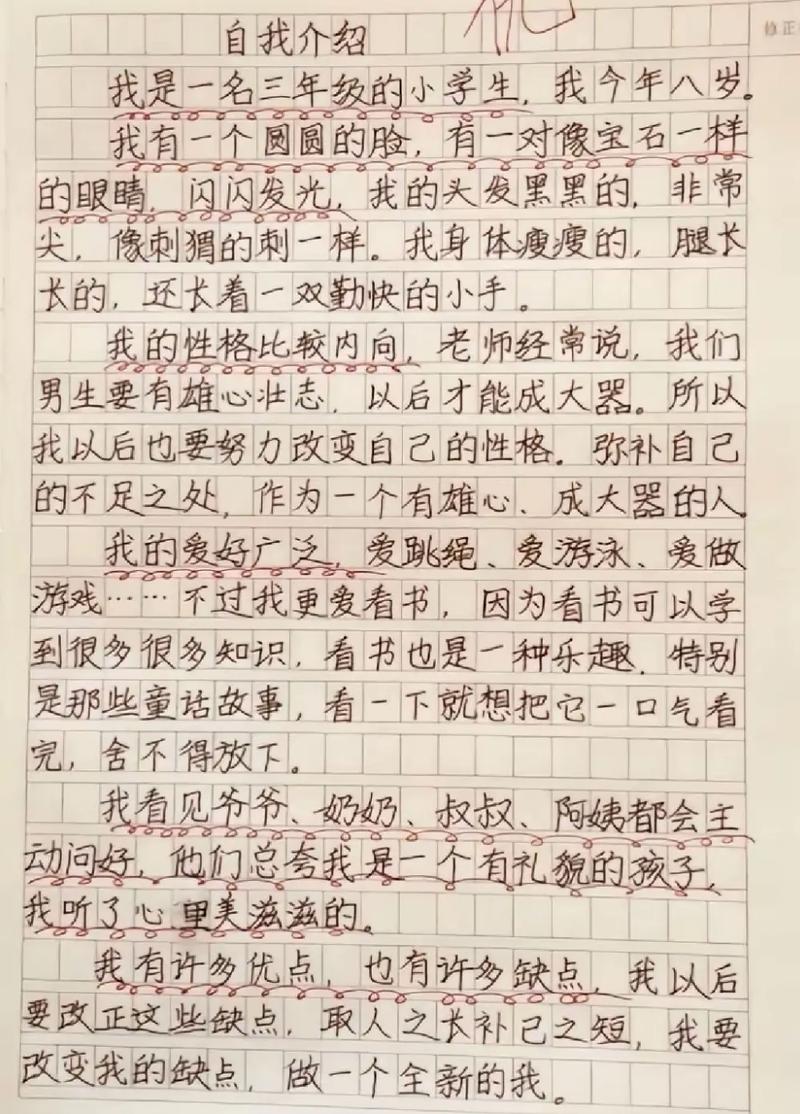 自我介绍
优
修正
我是一名三年级的小学生，我今年八岁。
我有一个圆圆的脸，有一对像宝石一样
的眼睛，闪闪发光，我的头发黑黑的，非常
尖，像刺猬的刺一样。我身体瘦瘦的，腿长
长的，还长着一双勤快的小手。
我的性格比较内向，老师经常说，我们
男生要有雄心壮志，以后才能成大器。所以
我以后也要努力改变自己的性格．弥补自己
的不足之处，作为一个有雄心、成大器的人。
我的爱好广泛，爱跳绳、爱游泳、爱做
游戏……不过我更爱看书，因为看书可以学
到很多很多知识，看书也是一种乐趣．特别
是那些童话故事，看一下就想把它一口气看
完，舍不得放下。
我看见爷爷、奶奶、叔叔、阿姨都会主
动问好，他们总夸我是一个有礼貌的孩子，
我听了心里美滋滋的。
我有许多优点，也有许多缺点，我以后
要改正这些缺点，取人之长补己之短，我要
改变我的缺点，做一个全新的我。